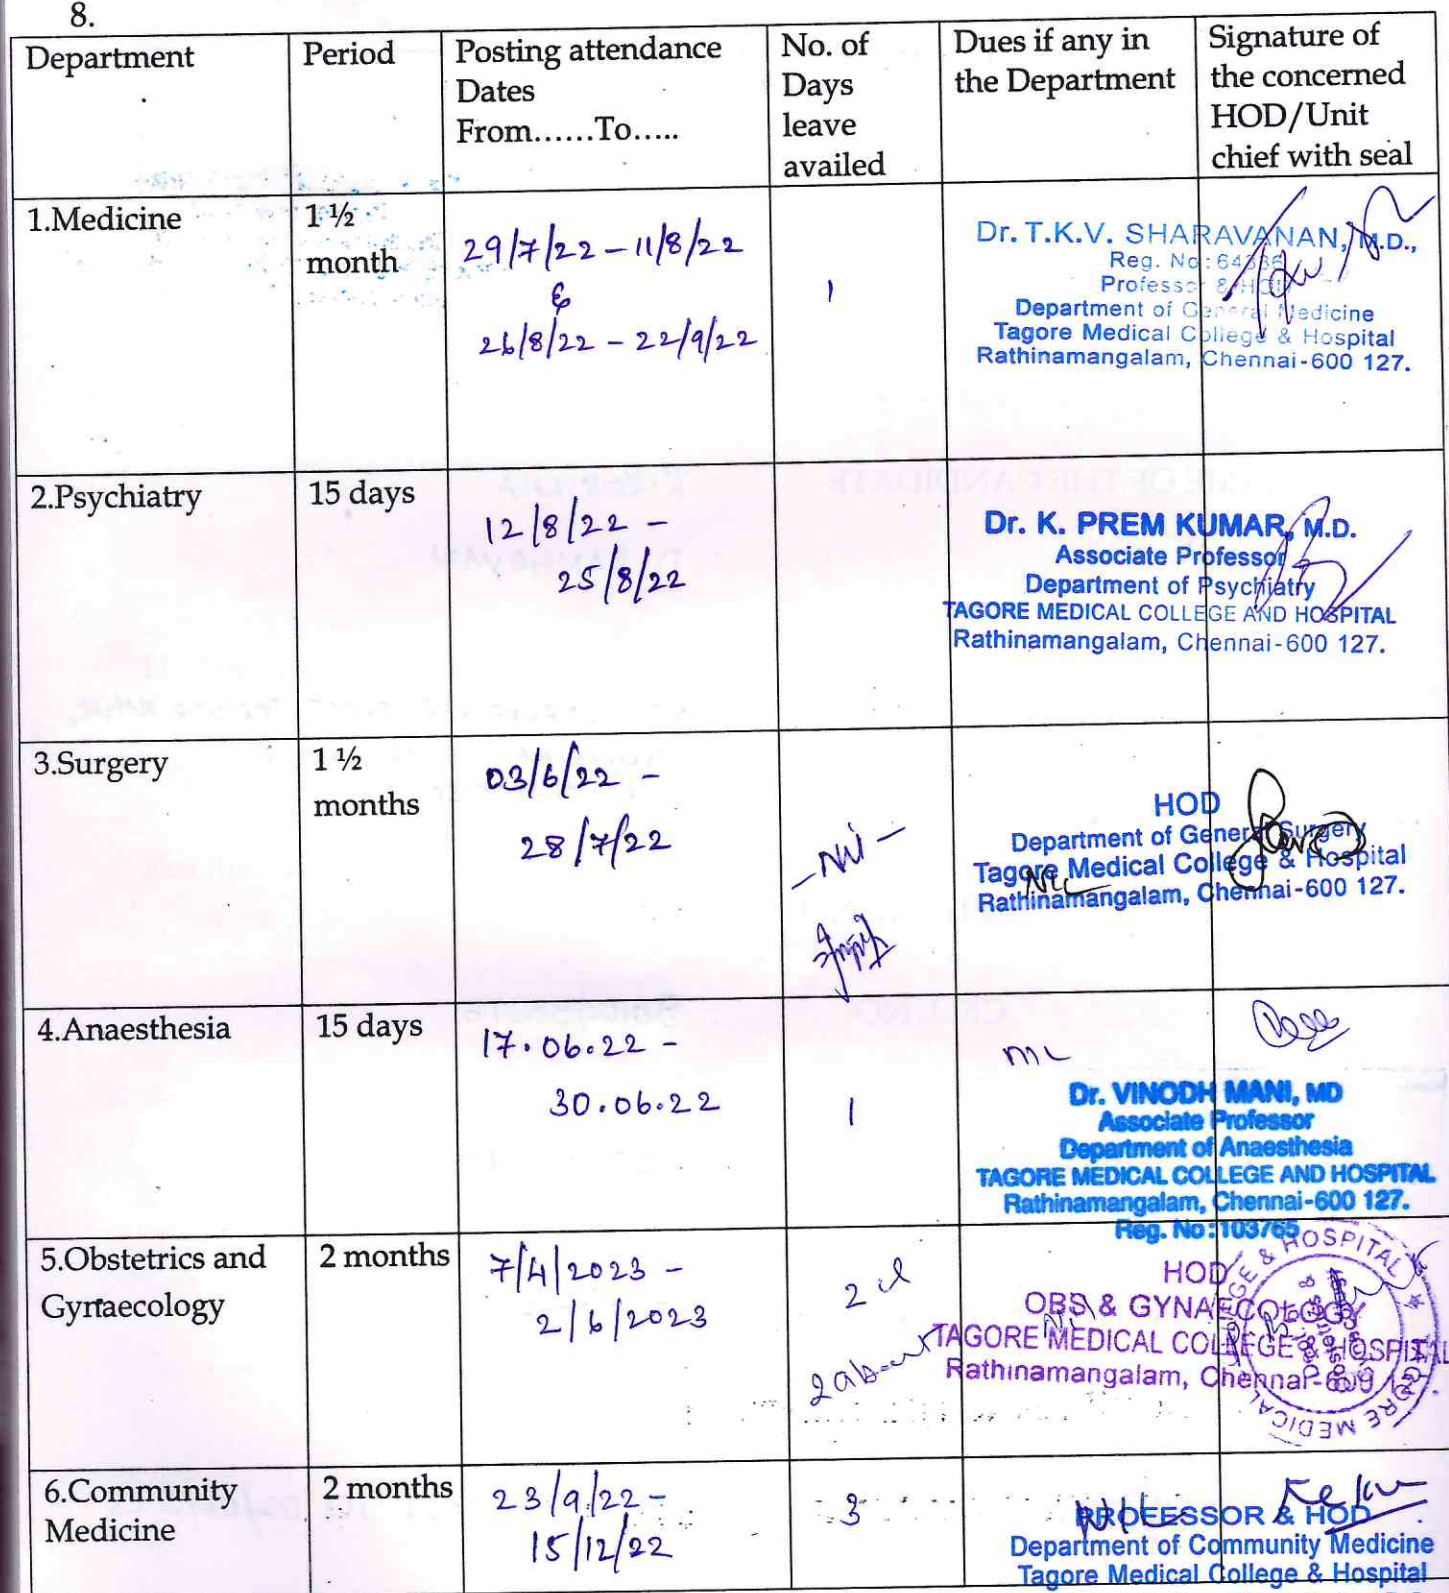 8.
Department
Period
Posting attendance
Dates
From......To.....
No. of
Days
leave
availed
Dues if any in
the Department
Signature of
the concerned
HOD/Unit
chief with seal
1.Medicine
1 ½
month
29/7/22 - 11/8/22
&
26/8/22 - 22/9/22
1
Dr. T.K.V. SHARAVANAN, M.D.,
Reg. No: 64386
Professor & HOD
Department of General Medicine
Tagore Medical College & Hospital
Rathinamangalam, Chennai-600 127.
2.Psychiatry
15 days
12/8/22 -
25/8/22
Dr. K. PREM KUMAR, M.D.
Associate Professor
Department of Psychiatry
TAGORE MEDICAL COLLEGE AND HOSPITAL
Rathinamangalam, Chennai-600 127.
3.Surgery
1 ½
months
03/6/22 -
28/7/22
- Nil -
HOD
Department of General Surgery
Tagore Medical College & Hospital
Rathinamangalam, Chennai-600 127.
4.Anaesthesia
15 days
17.06.22 -
30.06.22
1
Dr. VINODH MANI, MD
Associate Professor
Department of Anaesthesia
TAGORE MEDICAL COLLEGE AND HOSPITAL
Rathinamangalam, Chennai-600 127.
Reg. No:103765
5.Obstetrics and
Gynaecology
2 months
7/4/2023 -
2/6/2023
2 cl
2 absent
HOD
OBS & GYNAECOLOGY
TAGORE MEDICAL COLLEGE & HOSPITAL
Rathinamangalam, Chennai-600 127.
6.Community
Medicine
2 months
23/9/22 -
15/12/22
3
PROFESSOR & HOD
Department of Community Medicine
Tagore Medical College & Hospital